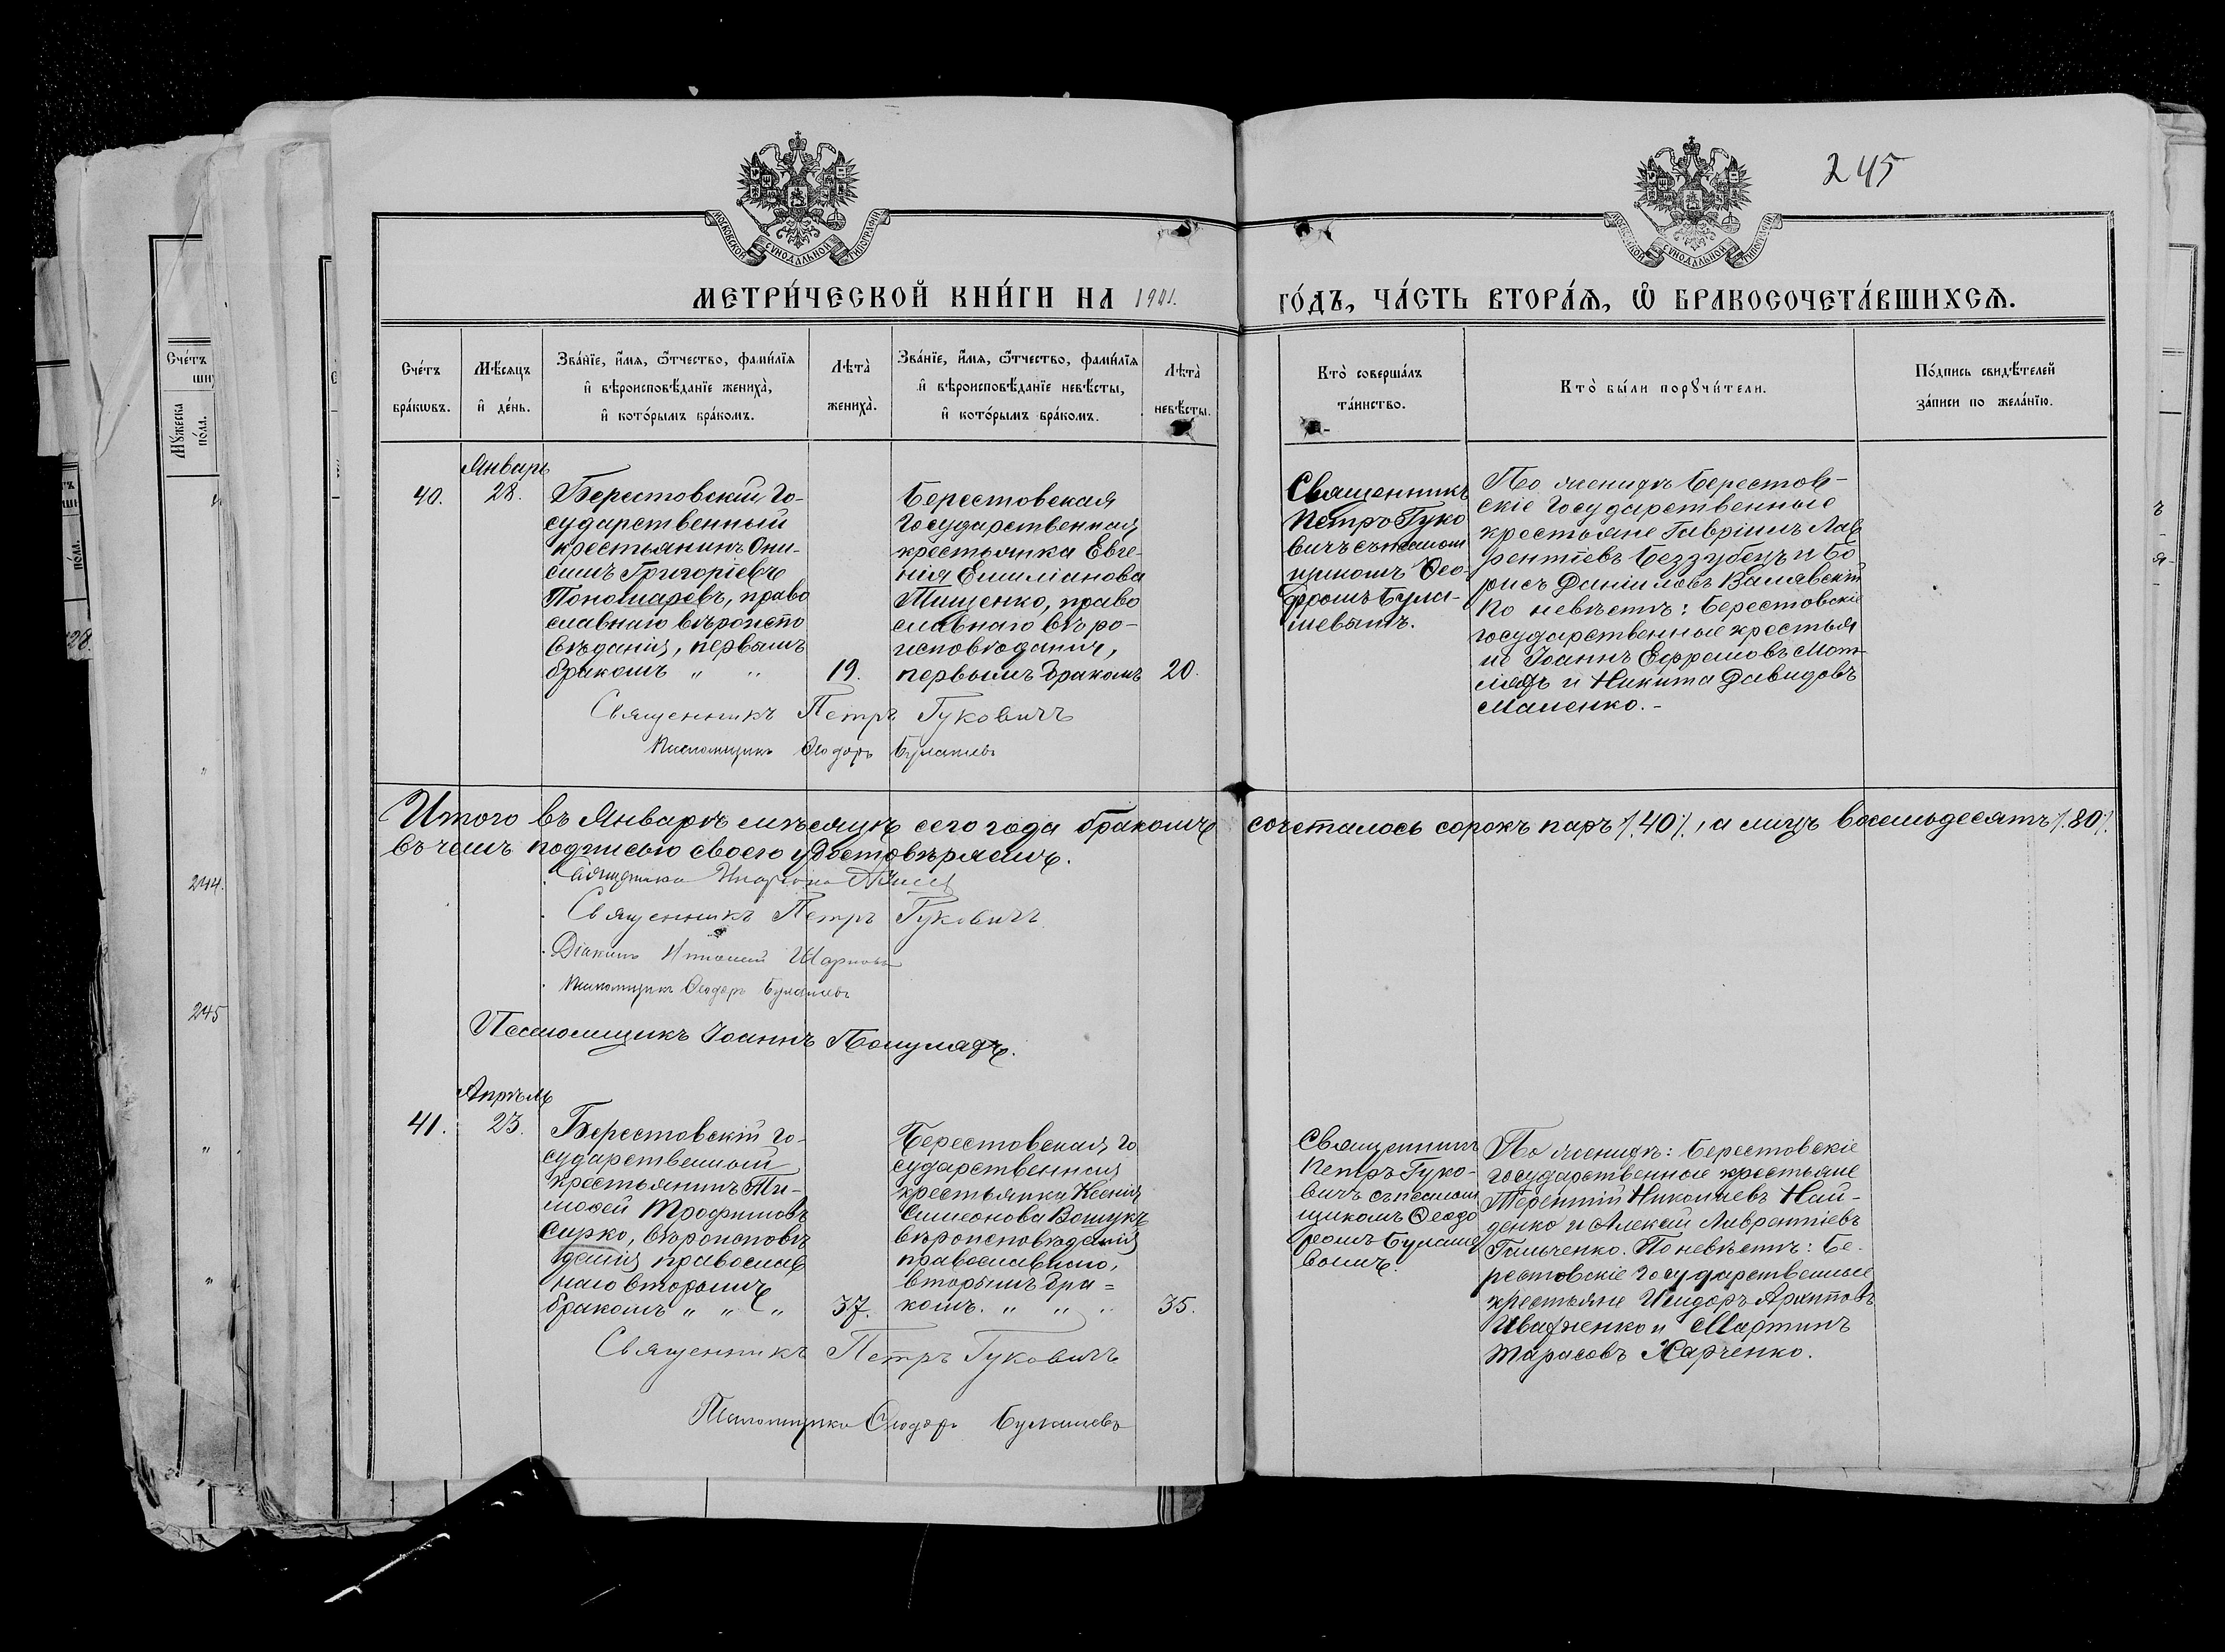 245
МОСКОВСКОЙ СУНОДАЛЬНОЙ ТИПОГРАФІИ
МОСКОВСКОЙ СУНОДАЛЬНОЙ ТИПОГРАФІИ
МЕТРИ́ЧЕСКОЙ КНИ́ГИ НА 1901. ГО́ДЪ, ЧА́СТЬ ВТОРА́Ѧ, Ѡ҆ БРАКОСОЧЕТА́ВШИХСѦ.
Сче́тъ бра́кѡвъ.
Мѣ́сяцъ и҆ де́нь.
Зва́нїе, и҆́мѧ, ѻ҆́тчество, фами́лїѧ
и҆ вѣроисповѣ́данїе жениха̀,
и҆ кото́рымъ бра́комъ.
Лѣта̀ жениха̀.
Зва́нїе, и҆́мѧ, ѻ҆́тчество, фами́лїѧ
и҆ вѣроисповѣ́данїе невѣ́сты,
и҆ кото́рымъ бра́комъ.
Лѣта̀ невѣ́сты.
Кто̀ соверша́лъ та́инство.
Кто̀ бы́ли порꙋчи́тели.
По́дпись свидѣ́телей за́писи по жела́нїю.
Январь
40.
28.
Берестовскій Го-
сударственный
крестьянинъ Они-
симъ Григоріевъ
Пономаревъ, право
славнаго вѣроиспо
вѣданія, первымъ
бракомъ „ „
19.
Берестовская
Государственная
крестьянка Евге-
нія Емиліанова
Тищенко, право
славнаго вѣро-
исповѣданія,
первымъ бракомъ
20.
Священникъ
Петръ Гуко
вичъ съ псалом
щикомъ Ѳео-
доромъ Була-
шевымъ.
По женихѣ Берестов-
скіе Государственные
крестьяне Гавріилъ Лав
рентіевъ Беззубецъ и Бо
рисъ Даніиловъ Валявскій
По невѣстѣ: Берестовскіе
государственные крестья
не Іоаннъ Ефремовъ Мот-
и Никита Давидовъ
Маменко.-
Священникъ Петръ Гуковичъ
Псаломщикъ Ѳеодоръ Булашевъ
Итого въ Январѣ мѣсяцѣ сего года бракомъ сочеталось сорокъ паръ /.40/., а лицъ восемьдесятъ /.80/.
въ чемъ подписью своею удостовѣряемъ.
Священникъ
Священникъ Петръ Гуковичъ
Діаконъ
Псаломщикъ Ѳеодоръ Булашевъ
Псаломщикъ Іоаннъ
Апрѣль
41.
23.
Берестовскій го-
сударственный
крестьянинъ Ти-
моѳей Трофимовъ
Сирко, вѣроисповѣ
данія православ
наго вторымъ
бракомъ „ „ „
37.
Берестовская го
сударственная
крестьянка Ксенія
Симеонова Вошукъ
вѣроисповѣданія
православнаго,
вторымъ бра=
комъ. „ „ „
35.
Священникъ
Петръ Гуко-
вичъ съ псалом
щикомъ Ѳеодо
ромъ Булаше
вымъ.
По женихѣ: Берестовскіе
государственные крестьяне
Терентій Николаевъ Най-
денко и Алексій Лаврентіевъ
Гальченко. По невѣстѣ: Бе-
рестовскіе Государственные
крестьяне Исидоръ Архиповъ
Ивахненко и Мартинъ
Тарасовъ Харченко.
Священникъ Петръ Гуковичъ
Псаломщикъ Ѳеодоръ Булашевъ
Сче́тъ
Мꙋ́жеска по́ла.
244.
245